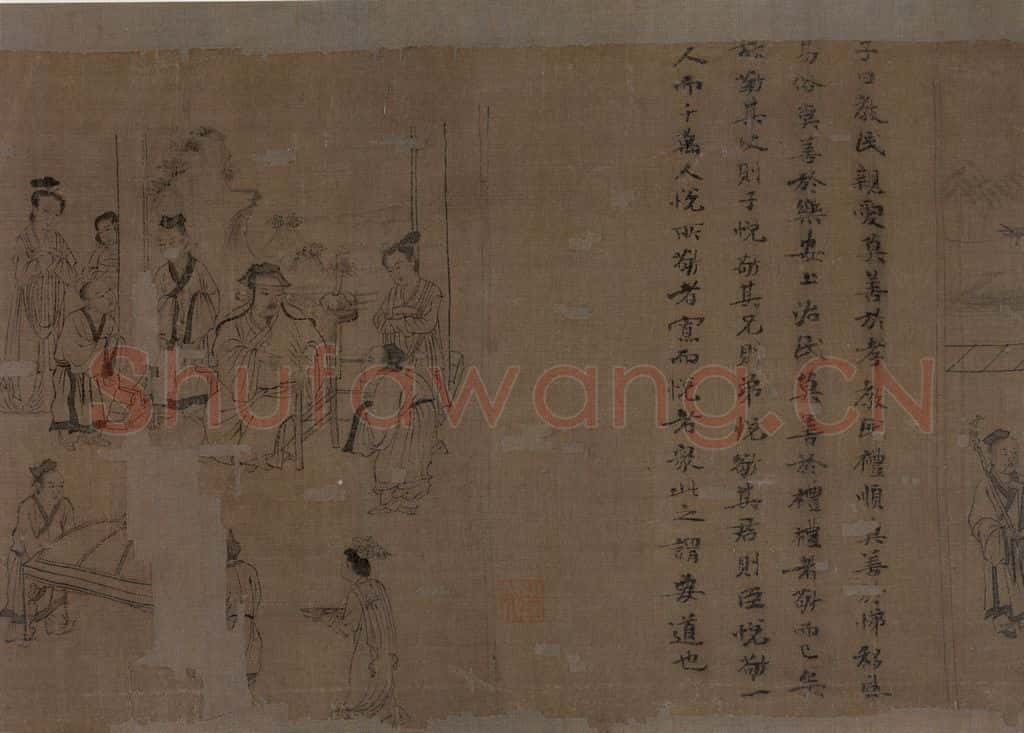 子曰教民親愛莫善於孝教民禮順莫善於悌移風
易俗莫善於樂安上治民莫善於禮禮者敬而已矣
故敬其父則子悅敬其兄則弟悅敬其君則臣悅敬一
人而千萬人悅所敬者寡而悅者衆此之謂要道也
Shufawang.CN